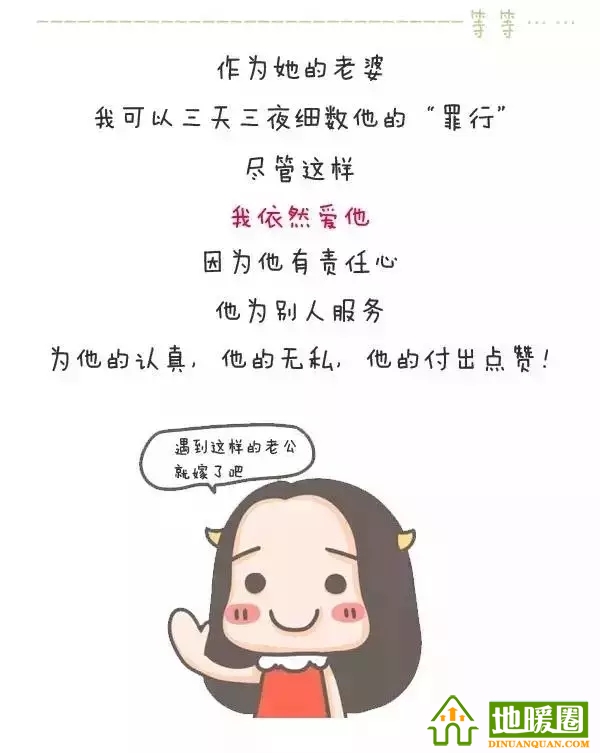 等等……
作为她的老婆
我可以三天三夜细数他的“罪行”
尽管这样
我依然爱他
因为他有责任心
他为别人服务
为他的认真，他的无私，他的付出点赞！
遇到这样的老公
就嫁了吧
地暖圈
DINUANQUAN.COM